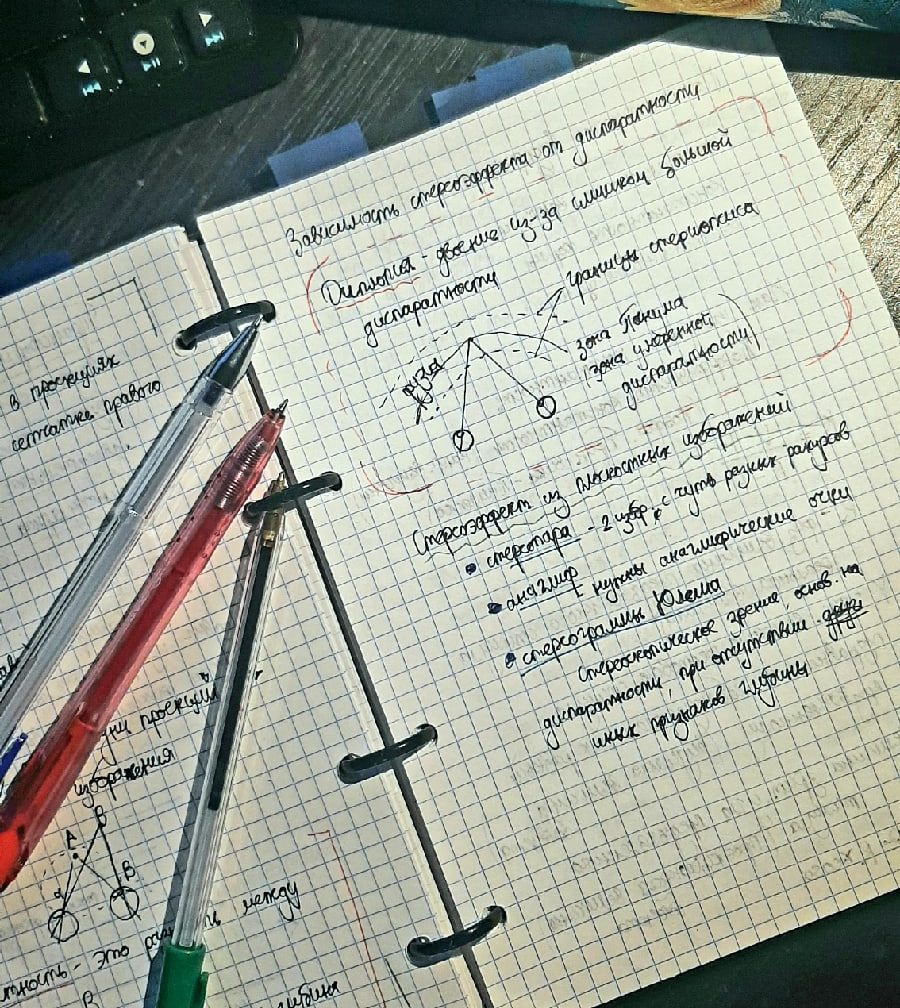 в проекциях
сетчатке правого
проекций
изображения
A
B
α
β
это
между
глубина
Зависимость стереоэффекта от диспаратности
Диплопия - двоение из-за слишком большой
диспаратности
границы стереопсиса
зона Панума
(зона умеренной
диспаратности)
Стереоэффект из плоскостных изображений
• стереопара - 2 изобр. с чуть разных ракурсов
• анаглиф - нужны анаглифические очки
• стереограммы Юлеша
стереоскопическое зрение, основ. на
диспаратности, при отсутствии
иных признаков глубины